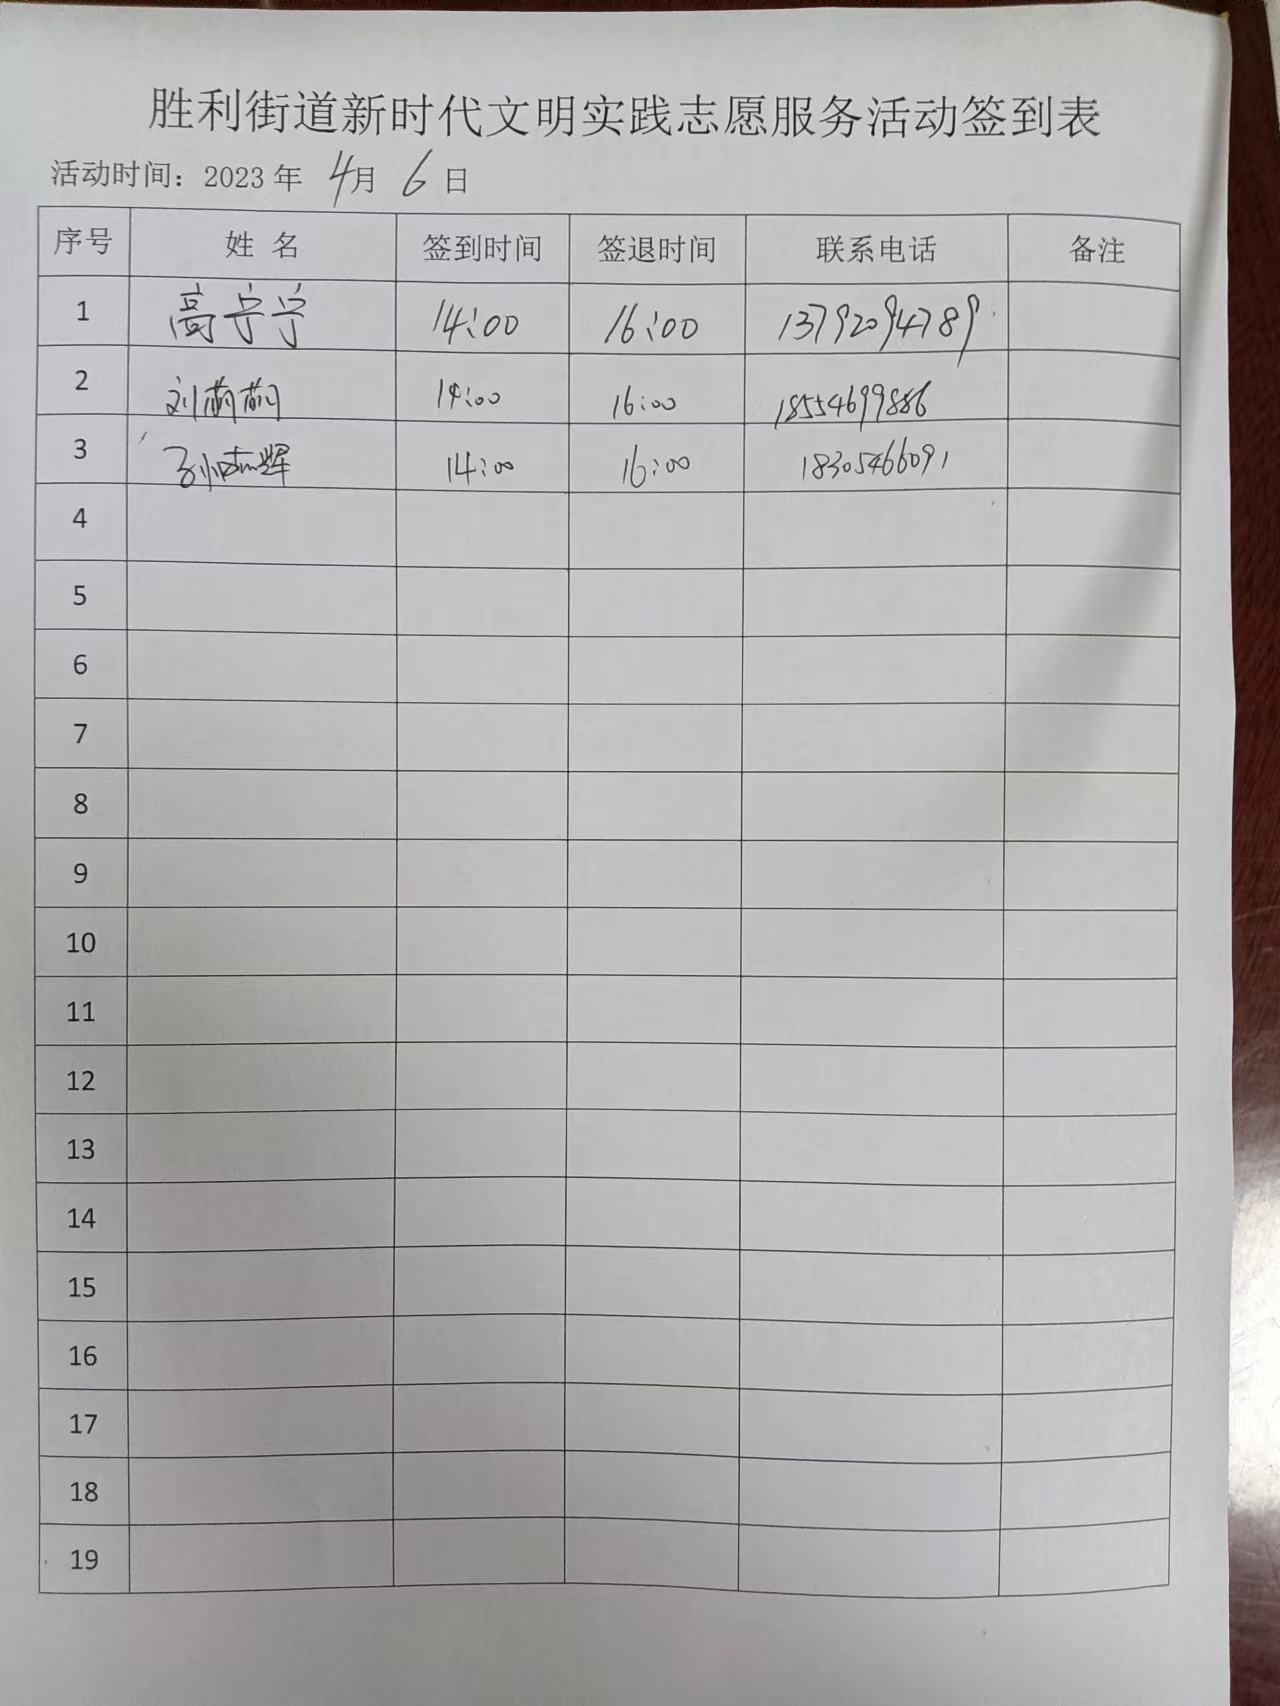 胜利街道新时代文明实践志愿服务活动签到表
活动时间：2023 年 4月 6 日
序号 姓 名 签到时间 签退时间 联系电话 备注
1 高宁宁 14:00 16:00 13792094789
2 刘萌萌 14:00 16:00 18554699886
3 孙志辉 14:00 16:00 18305466091
4
5
6
7
8
9
10
11
12
13
14
15
16
17
18
19